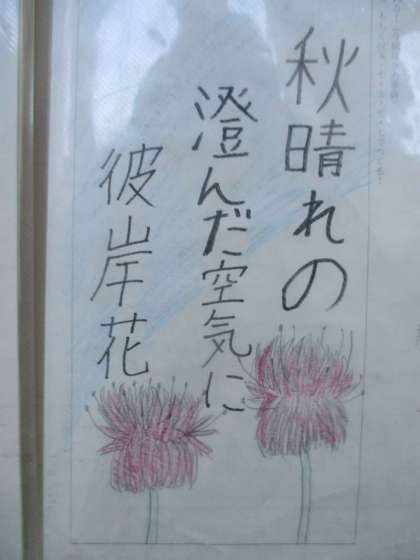 秋晴れの
澄んだ空気に
彼岸花